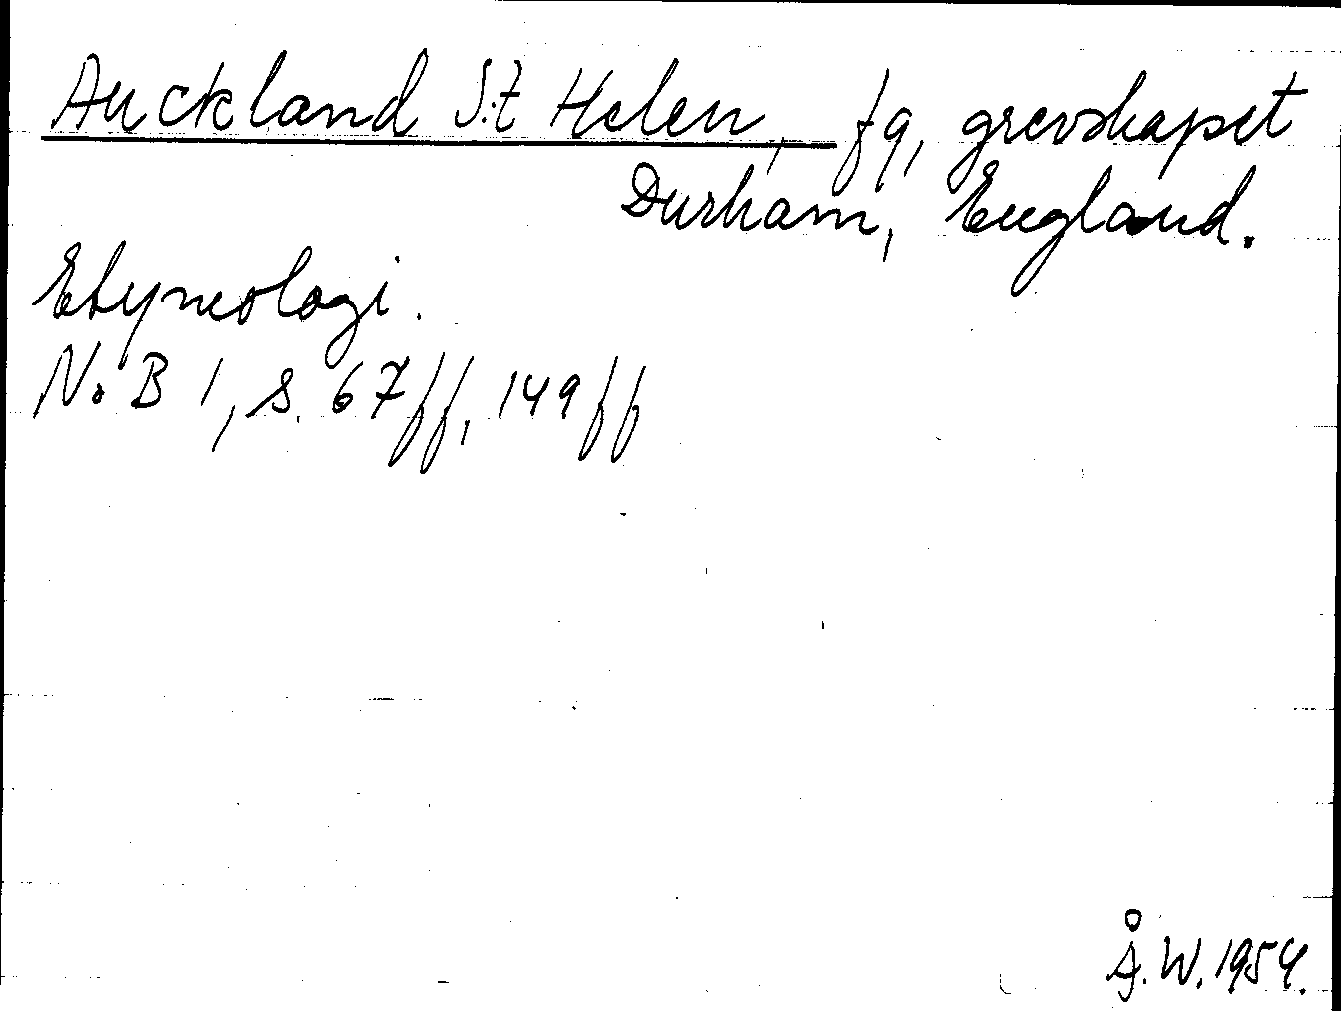 Auckland S:t Helen, fg, grevskapet
Durham, England.
Etymologi.
NoB 1, s. 67ff, 149ff
Å.W. 1954.